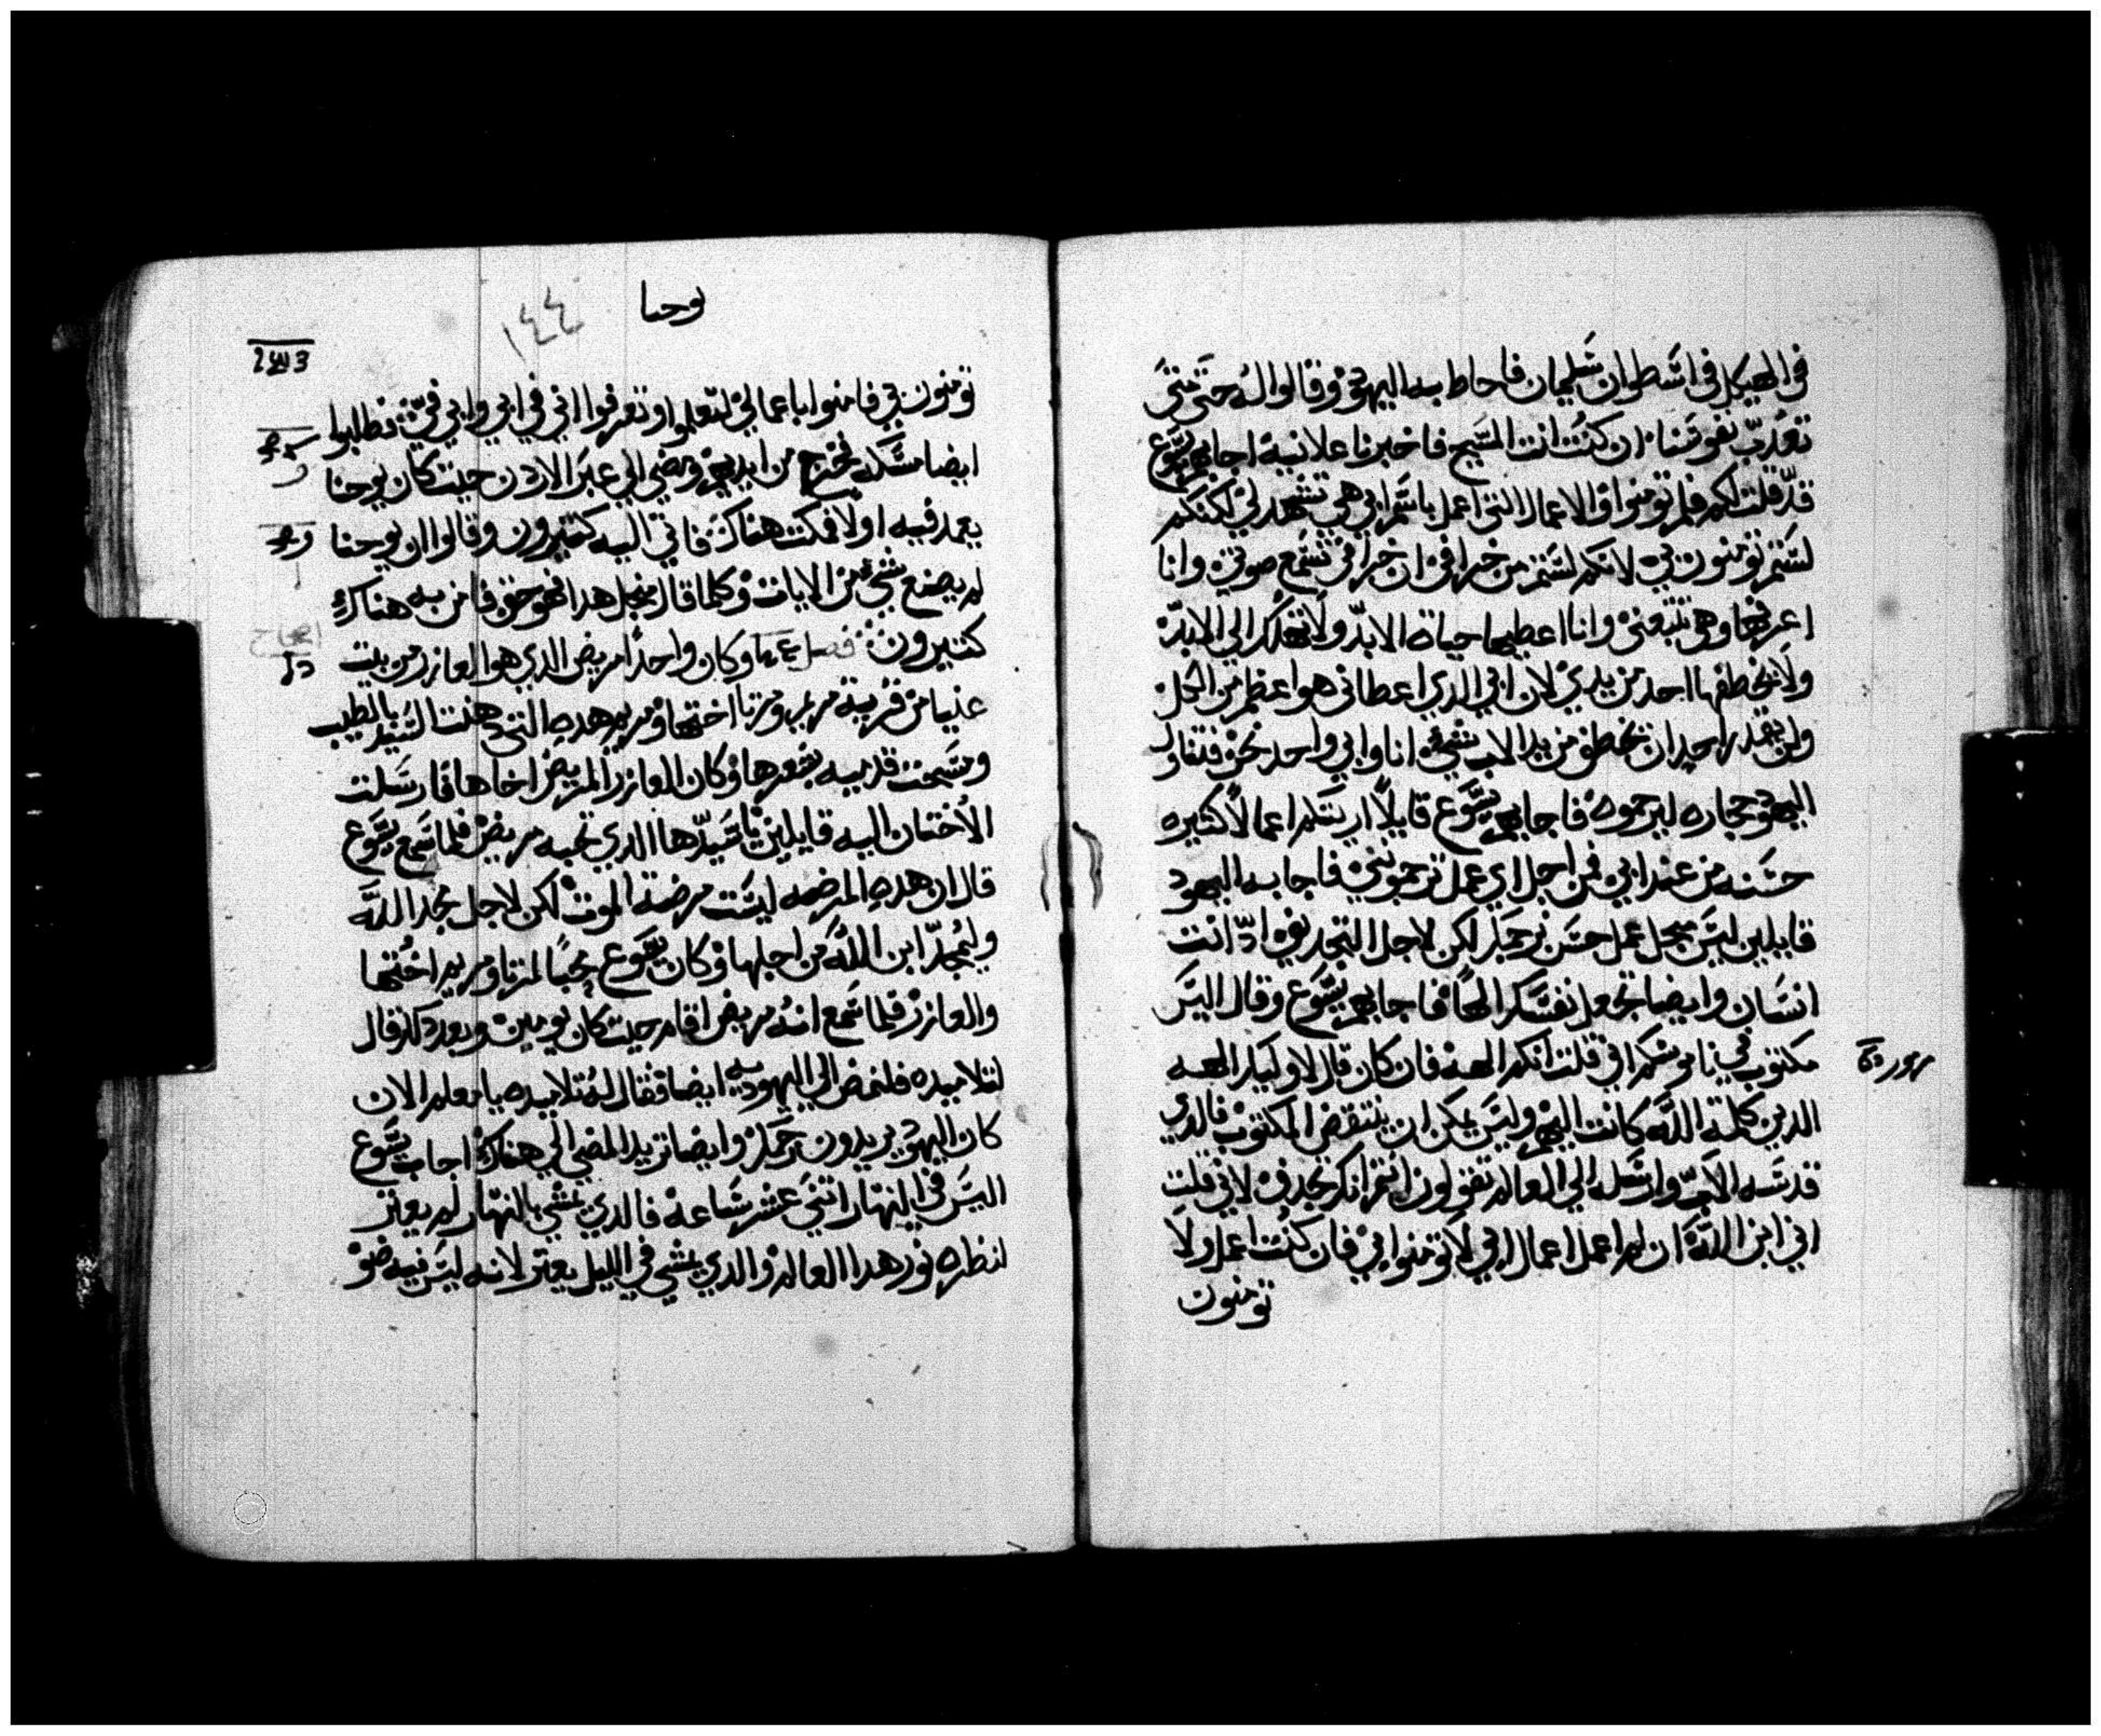 في الهيكل في اسطوان سليمان فاحاط به اليهود وقالوا له حتى متى
تعذب نفوسنا ان كنت انت المسيح فاخبرنا علانية اجابهم يسوع
قد قلت لكم فلم تومنوا والاعمال التي اعمل باسم ابي هي تشهد لي لكنكم
لستم تومنون بي لانكم لستم من خرافي ان خرافي تسمع صوتي وانا
اعرفها وهي تتبعني وانا اعطيها حياة الابد ولا تهلك الى الابد
ولا يخطفها احد من يدي لان ابي الدي اعطاني هو اعظم من الكل
ولن يقدر احد ان يخطف من يد الاب شي وانا وابي واحد نحن فتناول
اليهود حجاره ليرجموه فاجابهم يسوع قايلا اريتكم اعمالا كثيره
حسنه من عند ابي فمن اجل اي عمل ترجموني فاجابه اليهود
قايلين ليس من اجل عمل حسن نرجمك لكن لاجل التجديف اد انت
انسان وايضا تجعل نفسك الها فاجابهم يسوع وقال اليس
مكتوب في ناموسكم اني قلت انكم الهة فان كان قال لاوليك الهه
الدين كلمة الله كانت اليهم وليس يمكن ان ينتقض المكتوب فالدي
قدسه الاب وارسله الي العالم تقولون انتم انك تجدف لاني قلت
اني ابن الله ان لم اعمل اعمال ابي لا تومنوا بي فان كنت اعمل ولا
تومنون
يوحنا
١٤٤
تومنون بي فامنوا باعمالي لتعلموا وتعرفوا اني في ابي وابي في فطلبوا
ايضا مسكه فخرج من ايديهم ومضي الي عبر الاردن حيث كان يوحنا
يعمد فيه اولا فمكث هناك فاتي اليه كثيرون وقالوا ان يوحنا
لم يصنع شي من الايات وكلما قال من اجل هدا فهو حق فامن به هناك
كثيرون فصل وكان واحدا مريض الدي هو العازر من بيت
عنيا من قرية مريم ومرتا اختها ومريم هده التي دهنت السيد بالطيب
ومسحت قدميه بشعرها وكان العازر المريض اخاها فارسلت
الاختان اليه قايلين يا سيد ها الدي تحبه مريض فلما سمع يسوع
قال ان هده المرضه ليست مرضة الموت لكن لاجل مجد الله
وليمجد ابن الله من اجلها وكان يسوع محبا لمرتا ومريم اختها
والعازر فلما سمع انه مريض اقام حيث كان يومين وبعد دلك قال
لتلاميده فلنمض الي اليهوديه ايضا فقال له تلاميده يا معلم الان
كان اليهود يريدون رجمك وايضا تريد المضي الي هناك اجاب يسوع
اليس في النهار اثني عشر ساعة فالدي يمشي بالنهار لم يعتر
لنظره نور هدا العالم والدي يمشي في الليل يعتر لانه ليس فيه ضو